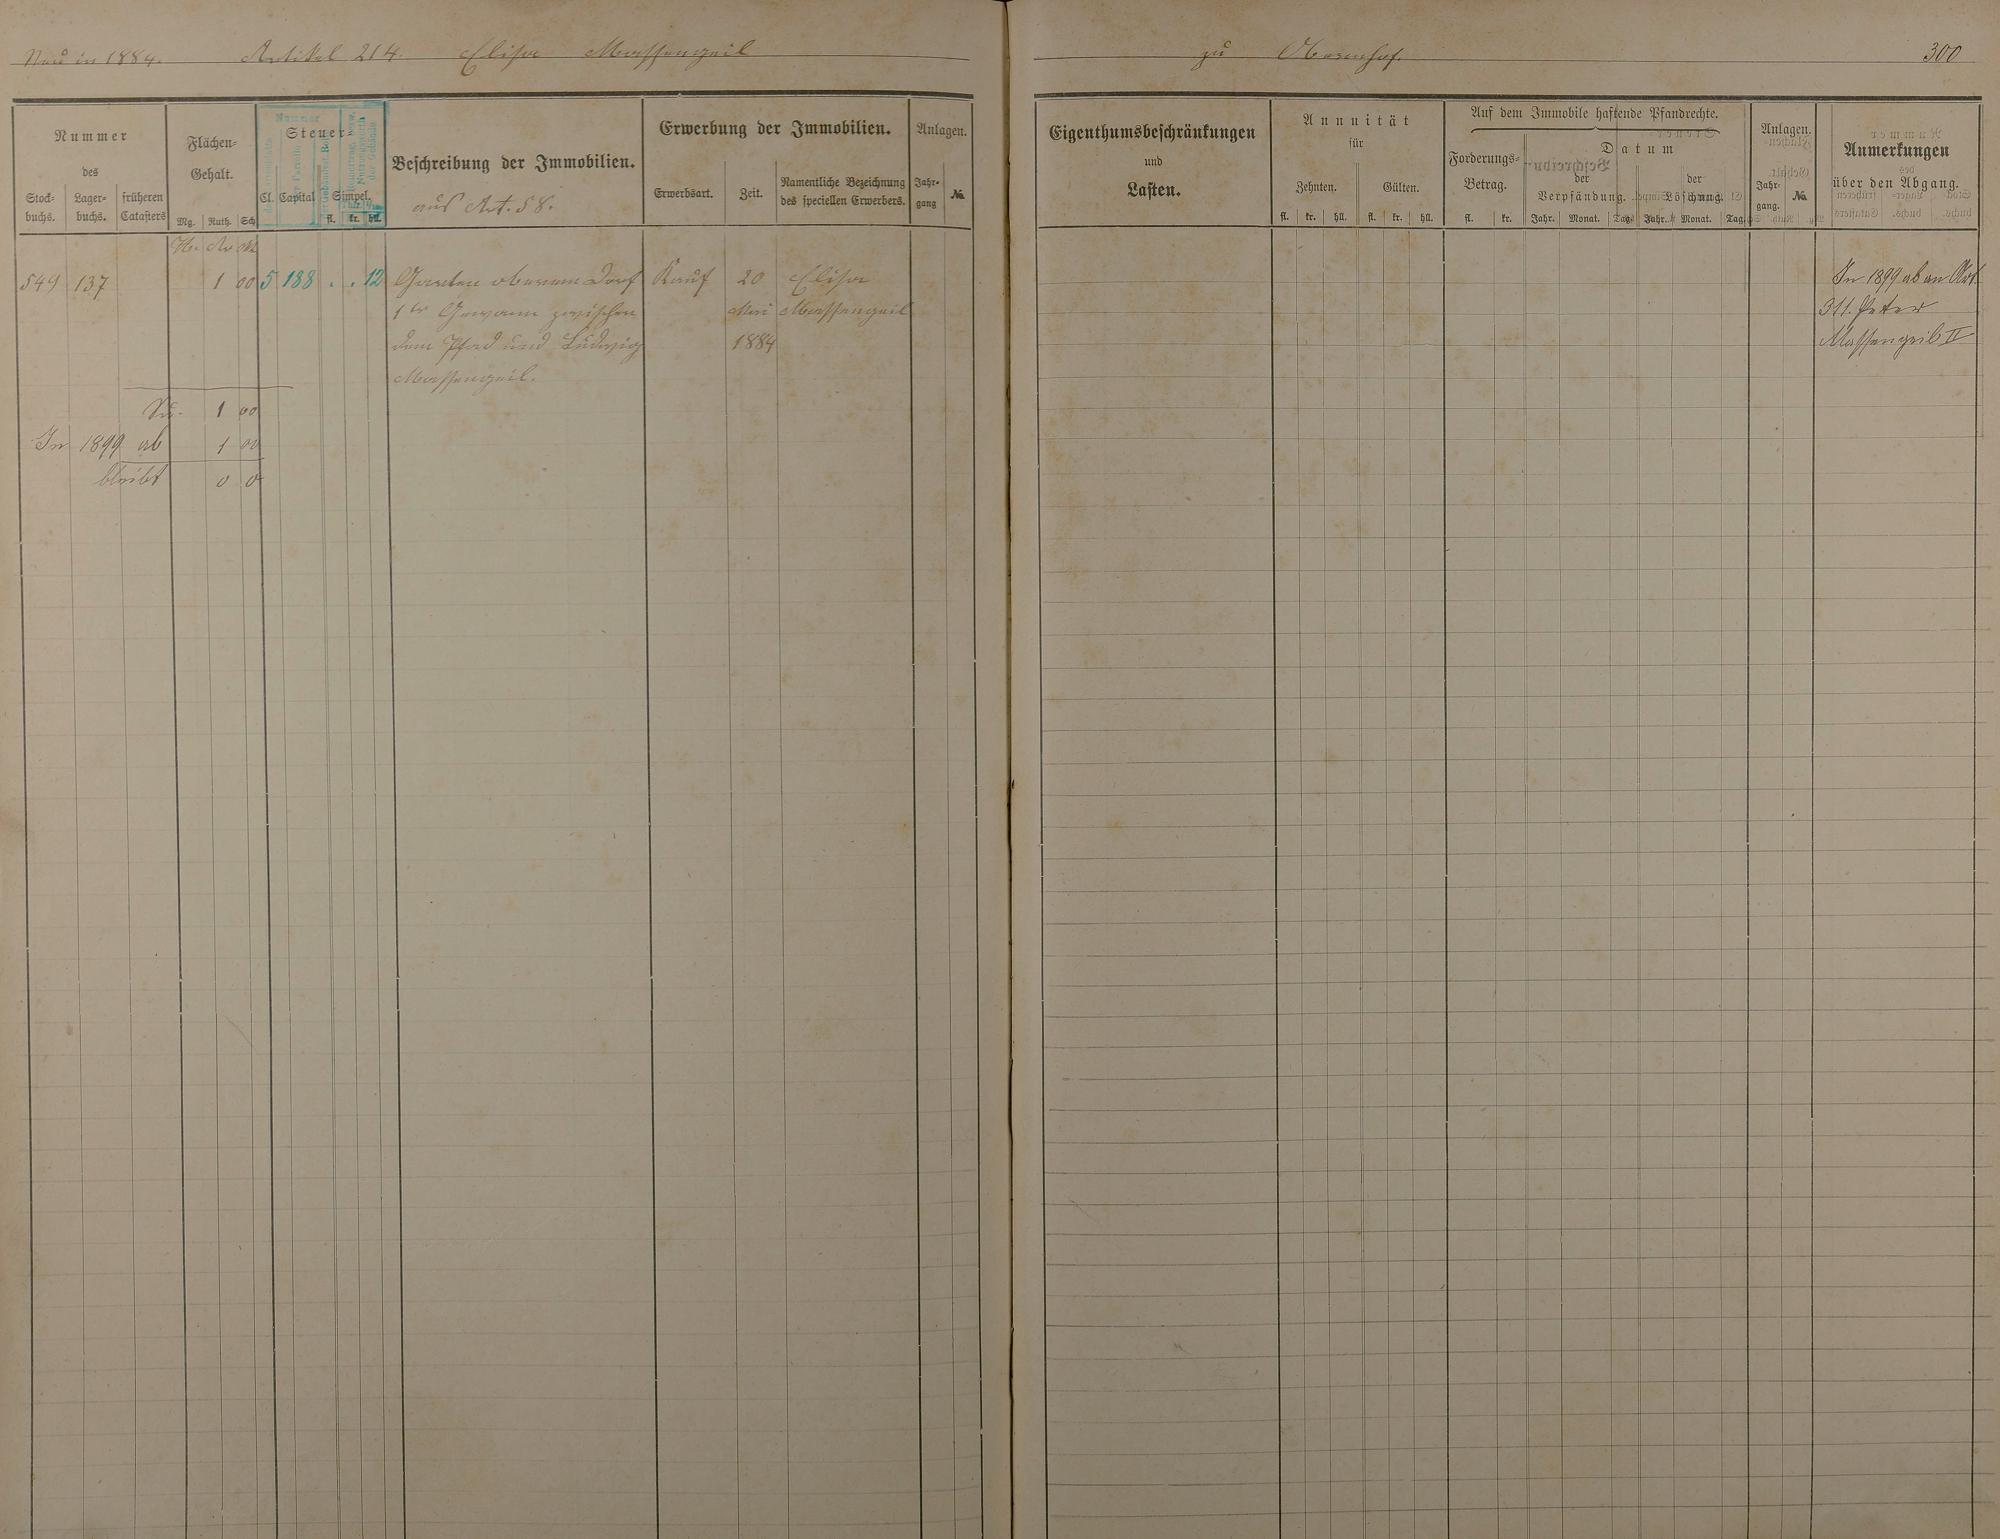 Neu in 1884. Artikel 214. Elisa Massengeil
zu Obernhof. 300
Nummer
des
Stock-
buchs.
Lager-
buchs.
früheren
Catasters
Flächen-
Gehalt.
Mg. Ruth. Sch.
Nummer
Steuer-
Cl. Capital Simpel.
fl. kr. hll.
Beschreibung der Immobilien.
aus Art. 58.
Erwerbung der Immobilien.
Erwerbsart. Zeit.
Namentliche Bezeichnung
des speciellen Erwerbers.
Anlagen.
Jahr-
gang
No.
Eigenthumsbeschränkungen
und
Lasten.
Annuität
für
Zehnten. Gülten.
fl. kr. hll. fl. kr. hll.
Auf dem Immobile haftende Pfandrechte.
Forderungs-
Betrag.
fl. kr.
Datum
der
Verpfändung.
der
Löschung.
Jahr. Monat. Tag. Jahr. Monat. Tag.
Anlagen.
Jahr-
gang.
No.
Anmerkungen
über den Abgang.
549 137 1 00 5 188 . . 12 Garten oberem Dorf Kauf 20 Elisa
1ter Gewann zwischen Mai Massengeil
dem Pfad und Ludwig 1884
Massengeil.
Su. 1 00
In 1899 ab 1 00
bleibt 0 0
In 1899 ab an Art.
311. Peter
Massengeil II